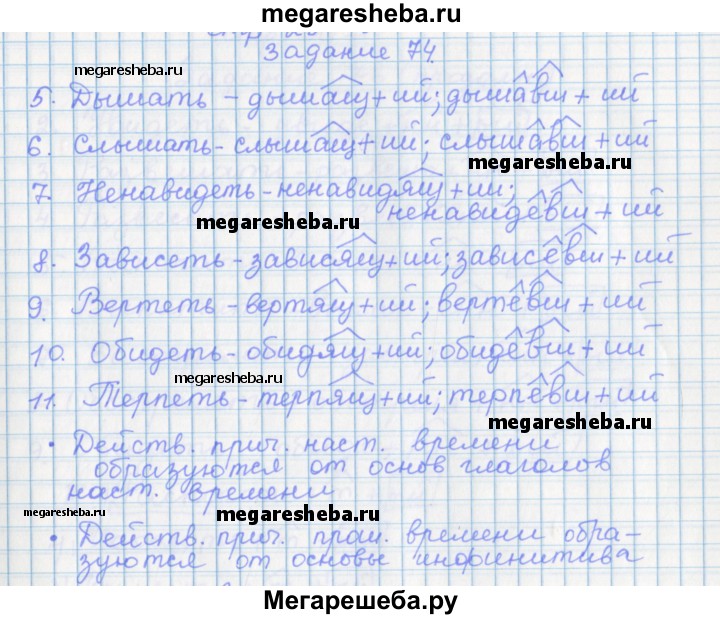 megaresheba.ru
Задание 74.
megaresheba.ru
5. Дышать – дышащ + ий; дышавш + ий
6. Слышать – слышащ + ий; слышавш + ий
megaresheba.ru
7. Ненавидеть – ненавидящ + ий;
megaresheba.ru
ненавидевш + ий
8. Зависеть – зависящ + ий; зависевш + ий
9. Вертеть – вертящ + ий; вертевш + ий
10. Обидеть – обидящ + ий; обидевш + ий
megaresheba.ru
11. Терпеть – терпящ + ий; терпевш + ий
megaresheba.ru
• Действ. прич. наст. времени
образуются от основ глаголов
наст. времени
megaresheba.ru
megaresheba.ru
• Действ. прич. прош. времени обра-
зуются от основы инфинитива
Мегарешеба.ру